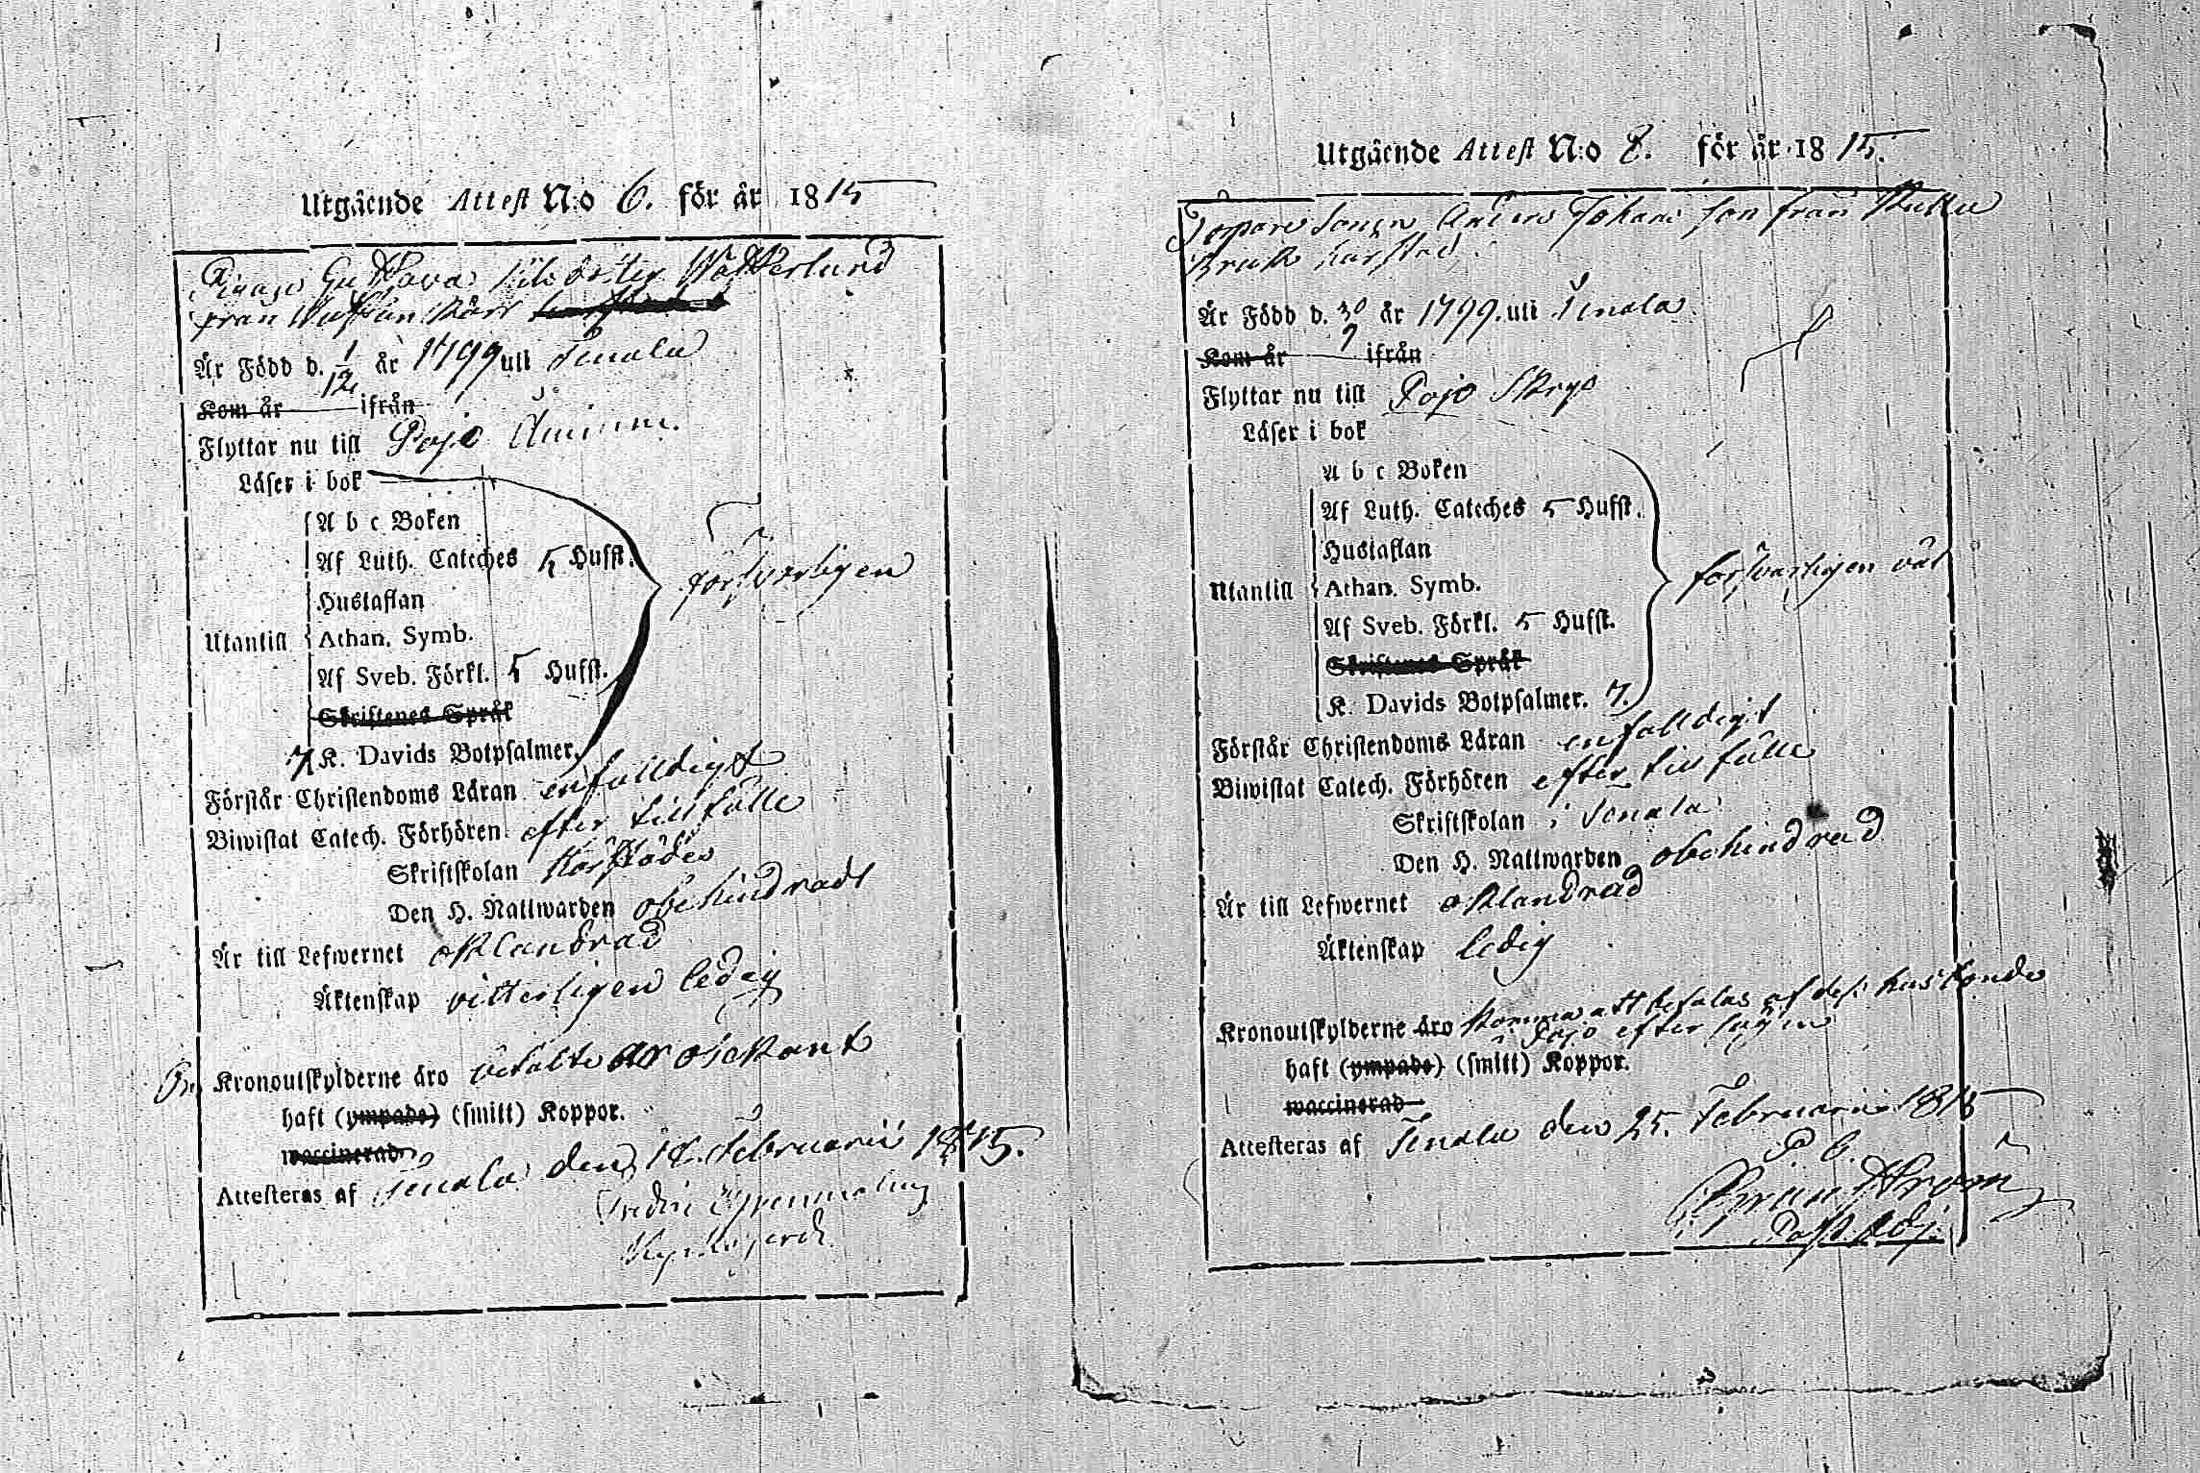 Utgående Attest N:o 6. för år 1815
Pigan Gustava Wästerlund
från
Är Född d. 1/12 år 1799 uti Tenala
Kom år ifrån
Flyttar nu till Pojo Åminne.
Läser i bok
A b c Boken
Af Luth. Cateches 5 Hufst.
Hustaflan
Utantill Athan. Symb.
Af Sveb. Förkl. 5 Hufst.
Skriftenes Språk
7 K. Davids Botpsalmer.
försvarligen
Förstår Christendoms Läran enfalldigt
Biwistat Catech. Förhören efter tillfälle
Skriftskolan
Den H. Nattwarden obehindradt
Är till Lefwernet oklandrad
Äktenskap vitterligen ledig
Kronoutskylderne äro betalte
haft (ympade) (smitt) Koppor.
waccinerad
Attesteras af Tenala den Februarii 1815.
Utgående Attest N:o 8. för år 1815.
Anders Johans son från
Bruk
Är Född d. 30/9 år 1799. uti Tenala
Kom år ifrån
Flyttar nu till Pojo
Läser i bok
A b c Boken
Af Luth. Cateches 5 Hufst.
Hustaflan
Utantill Athan. Symb.
Af Sveb. Förkl. 5 Hufst.
Skriftenes Språk
K. Davids Botpsalmer. 7.
försvarligen väl
Förstår Christendoms Läran enfalldigt
Biwistat Catech. Förhören efter tillfälle
Skriftskolan i Tenala
Den H. Nattwarden obehindrad
Är till Lefwernet oklandrad
Äktenskap ledig
Kronoutskylderne äro komma att betalas af dess husbonde
i Pojo efter
haft (ympade) (smitt) Koppor.
waccinerad
Attesteras af Tenala den 25. Februarii 1815
Past. Adj.